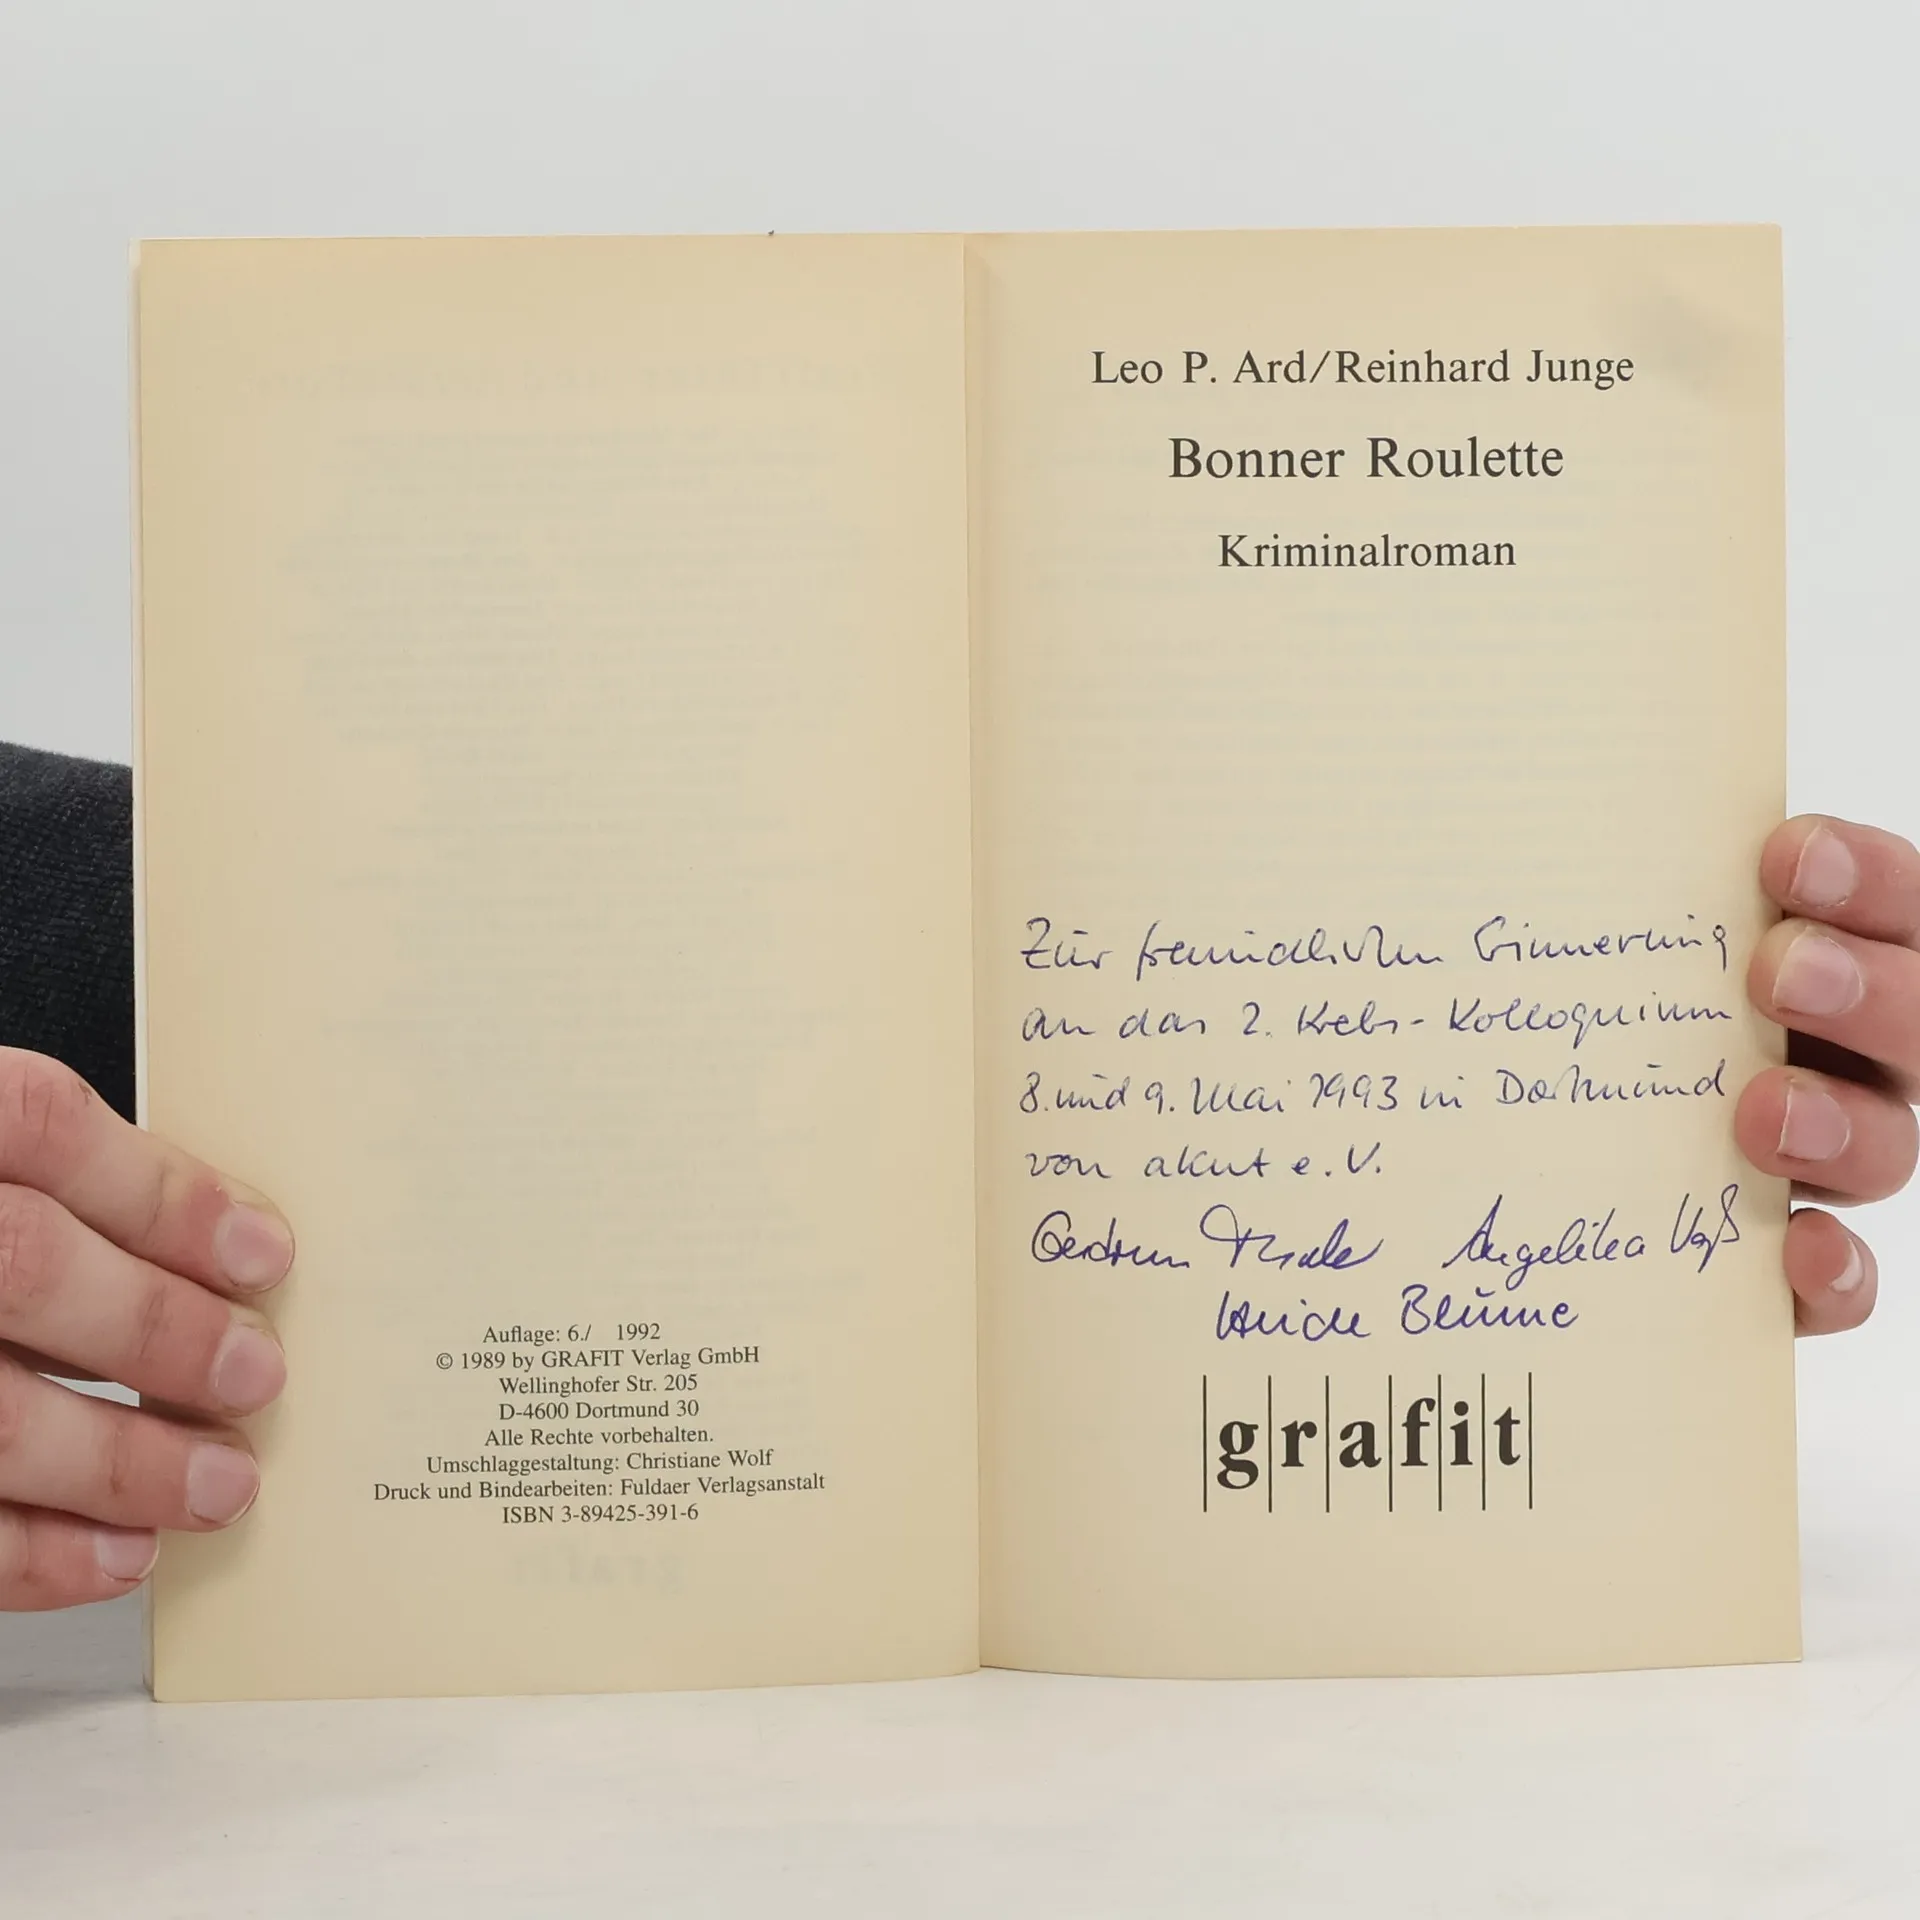 Auflage: 6./ 1992
© 1989 by GRAFIT Verlag GmbH
Wellinghofer Str. 205
D-4600 Dortmund 30
Alle Rechte vorbehalten.
Umschlaggestaltung: Christiane Wolf
Druck und Bindearbeiten: Fuldaer Verlagsanstalt
ISBN 3-89425-391-6
Leo P. Ard/Reinhard Junge
Bonner Roulette
Kriminalroman
Zur freundlichen Erinnerung
an das 2. Krebs-Kolloquium
8. und 9. Mai 1993 in Dortmund
von akut e.V.
Angelika Voß
Heide Blume
grafit